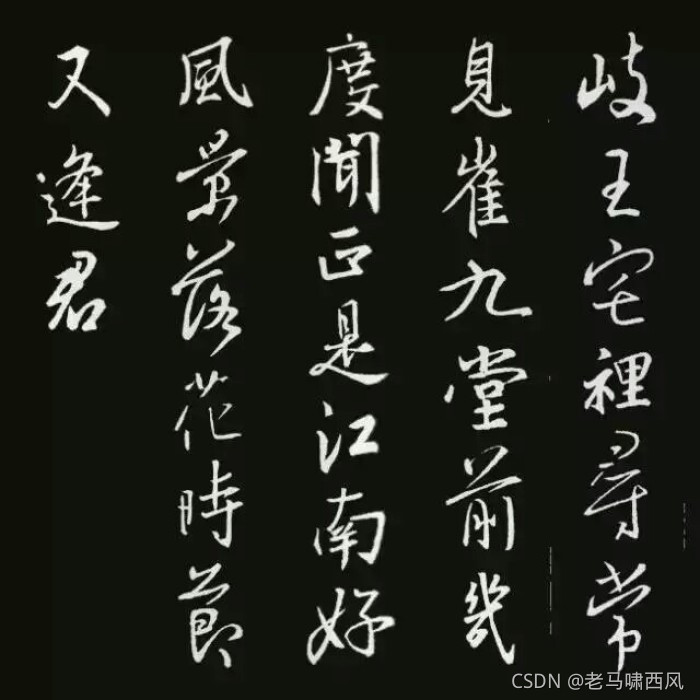 岐王宅裡尋常
見崔九堂前幾
度聞正是江南好
風景落花時節
又逢君
CSDN @老马啸西风